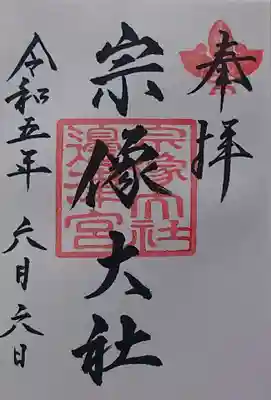 奉拝
宗像大社
宗像大社
邉津宮
令和五年 六月六日